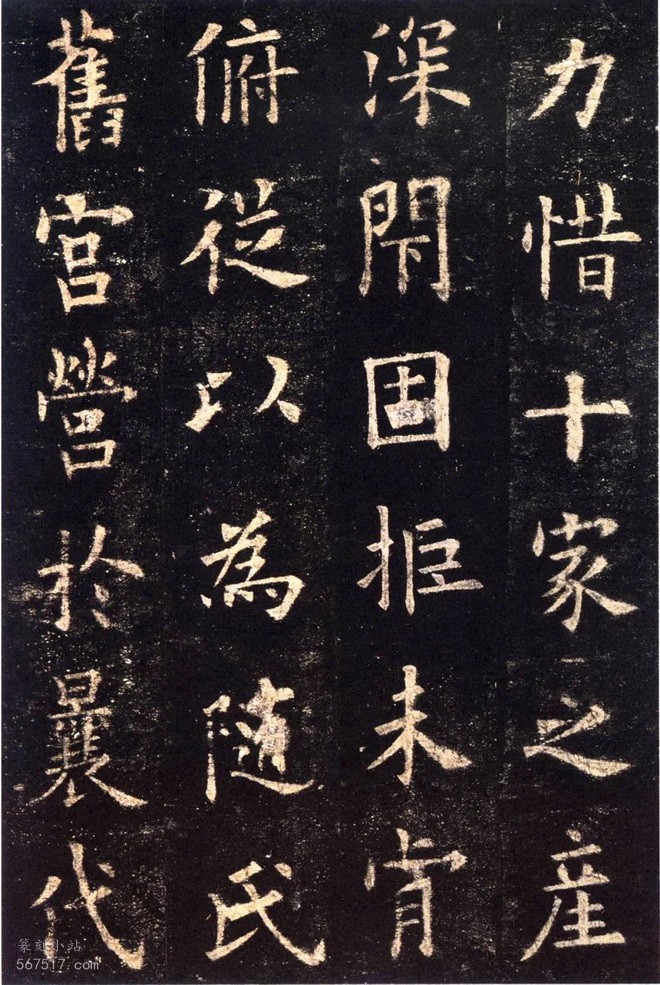 力惜十家之産
深閇固拒未肯
俯從以為隨氏
舊宮營於曩代
篆刻小站
567517.com